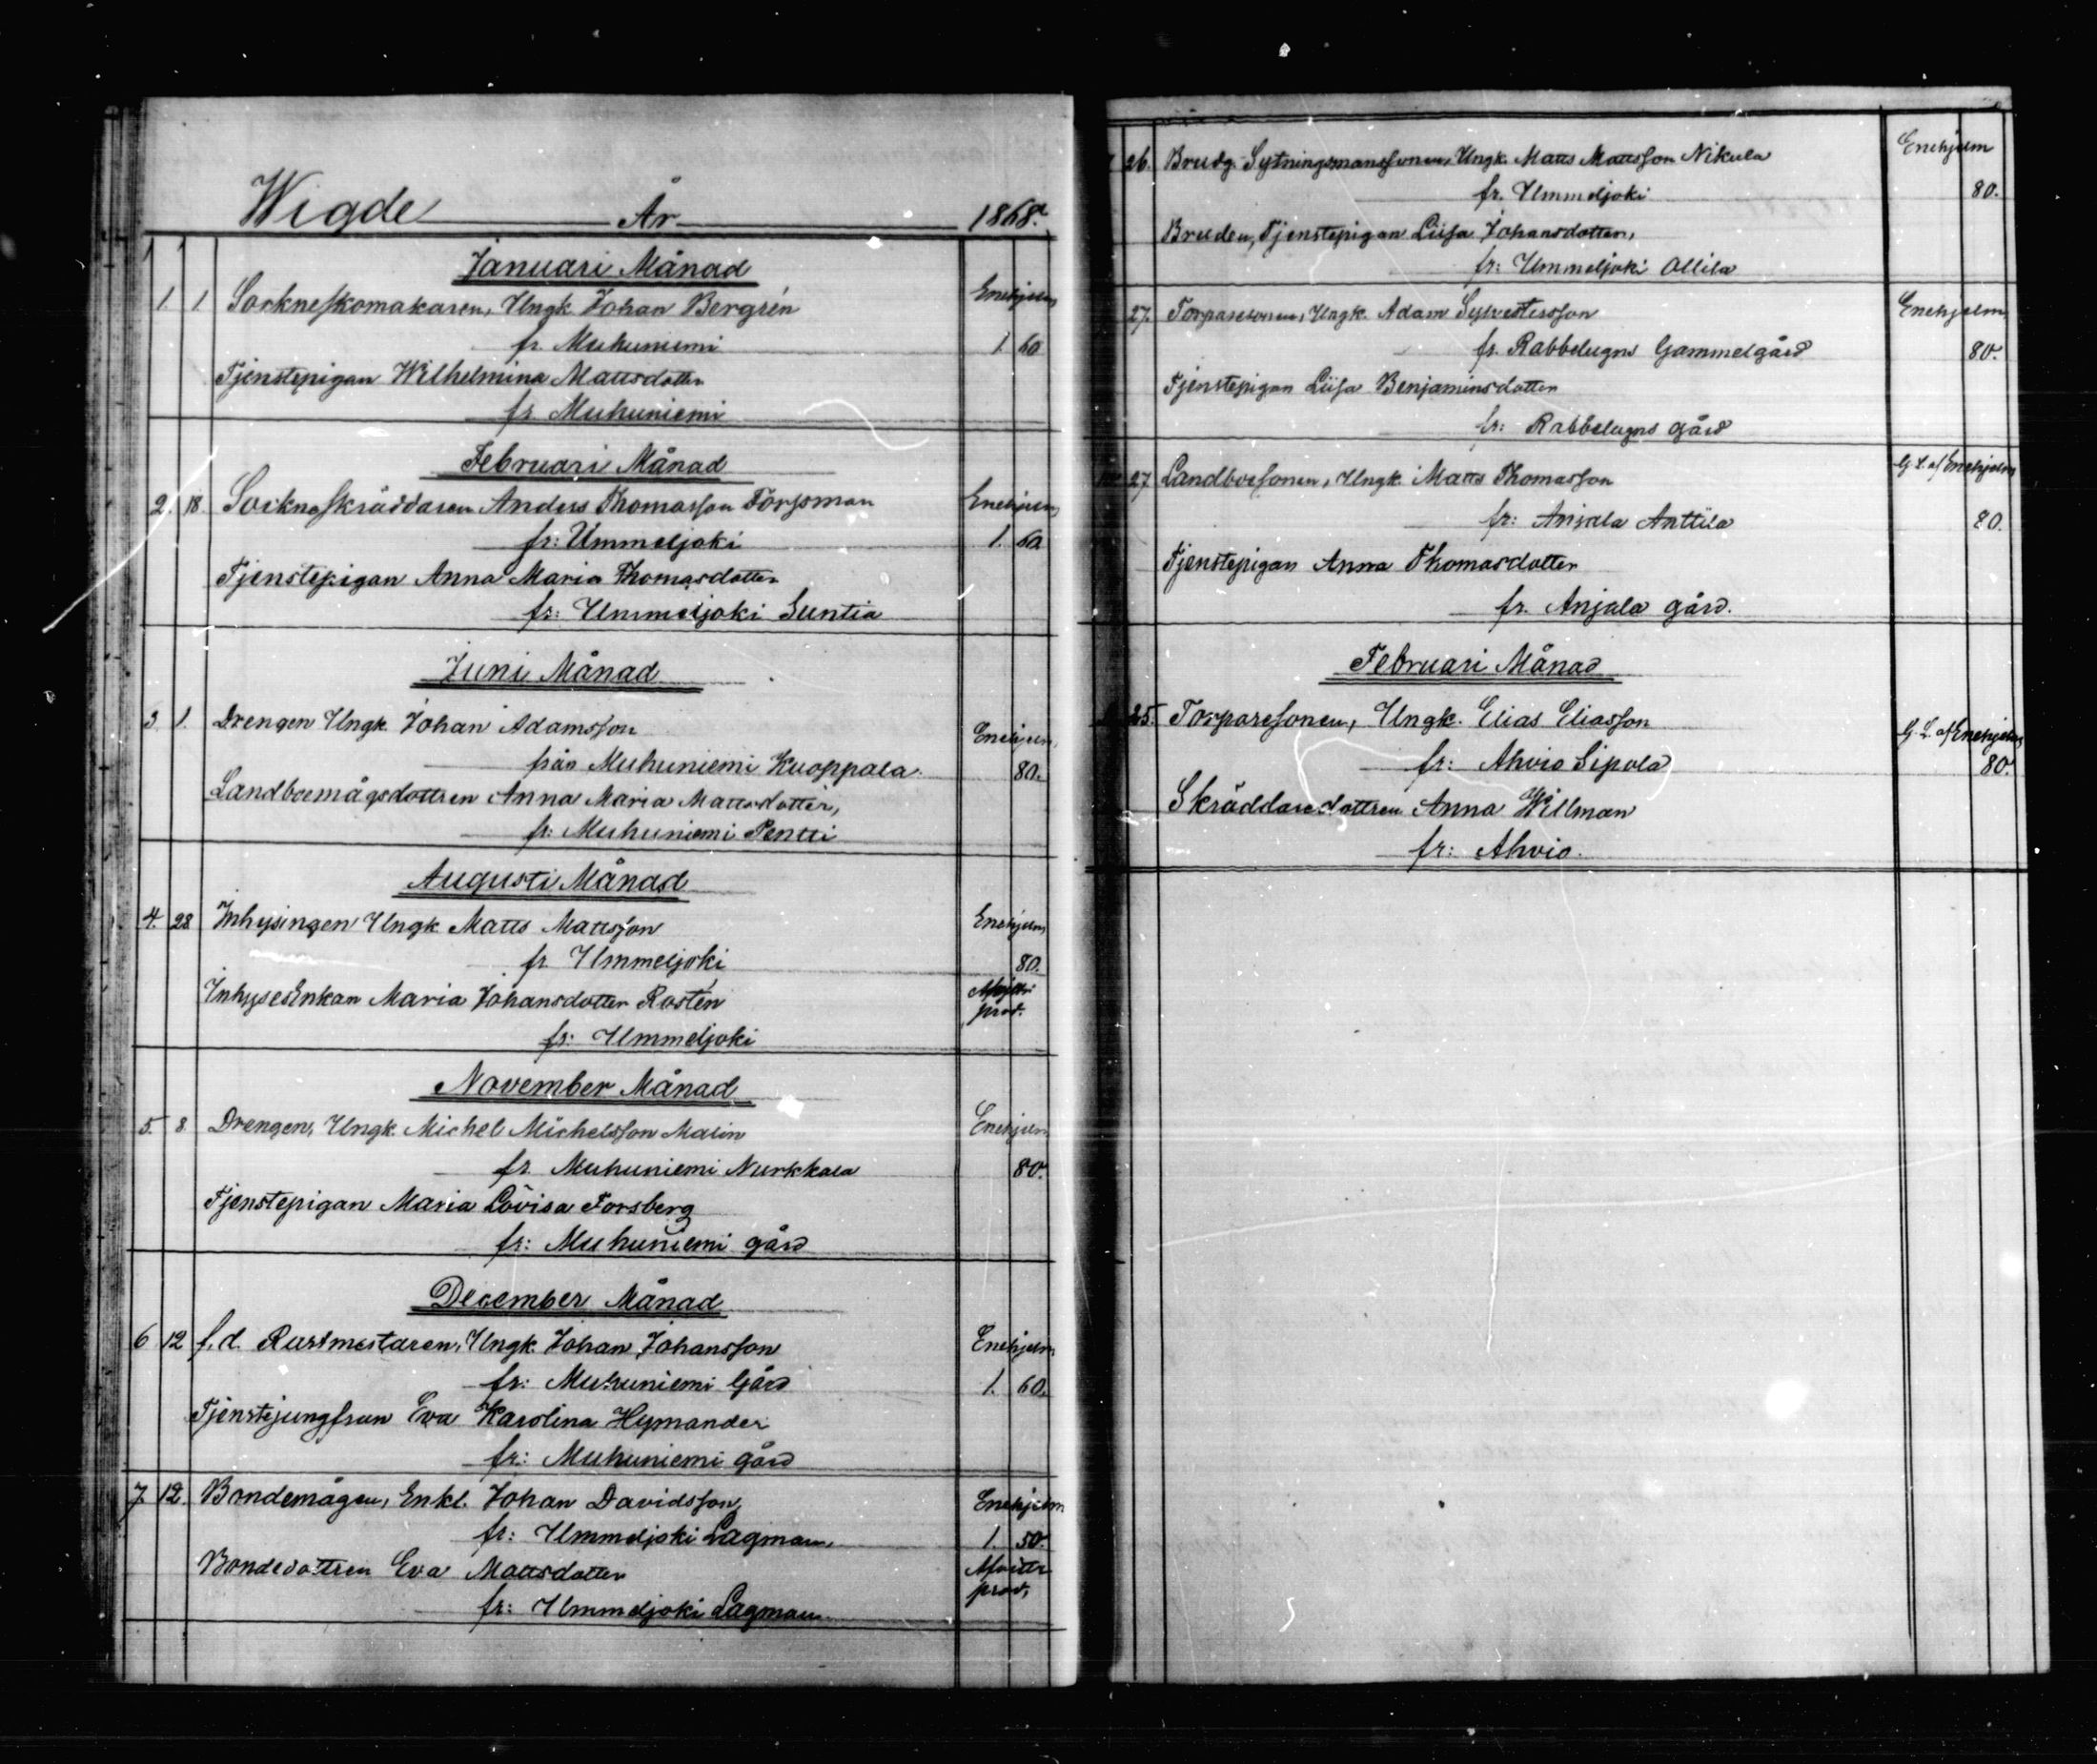 Wigde År 1868.
Januari Månad
1. 1 Sockneskomakaren, Ungk. Johan Bergrén Enehjelm
fr. Muhuniemi 1. 60
Tjenstepigan Wilhelmina Mattsdotter
fr. Muhuniemi
Februari Månad
2. 18. Sockneskräddaren Anders Thomasson Forsman Enehjelm
fr: Ummeljoki 1. 60
Tjenstepigan Anna Maria Thomasdotter
fr: Ummeljoki Suntia
Juni Månad
3. 1. Drengen Ungk. Johan Adamsson Enehjelm
från Muhuniemi Kuoppala. 80.
Landboemågsdottren Anna Maria Mattsdotter,
fr: Muhuniemi Pentti
Augusti Månad
4. 28 Inhysingen Ungk Matts Mattsson Enehjelm
fr. Ummeljoki 80.
InhysesEnkan Maria Johansdotter Rostén
prod.
fr: Ummeljoki
November Månad
5. 8. Drengen, Ungk. Michel Michelsson Malin Enehjelm
fr. Muhuniemi Nurkkala 80.
Tjenstepigan Maria Lovisa Forsberg
fr: Muhuniemi gård
December Månad
6 12 f.d. Rustmestaren, Ungk. Johan Johansson Enehjelm
fr: Muhuniemi Gård 1. 60.
Tjenstejungfrun Eva Karolina Hymander
fr: Muhuniemi gård
7. 12. Bondemågen, Enkl. Johan Davidsson, Enehjelm
fr: Ummeljoki Lagman, 1. 50.
Bondedottren Eva Mattsdotter Afvittr
prod,
fr: Ummeljoki Lagman
26. Brudg. Sytningsmanssonen, Ungk. Matts Mattsson Nikula Enehjelm
fr. Ummeljoki 80.
Bruden, Tjenstepigan Liisa Johansdotter,
fr: Ummeljoki Ollila
27. Torparesonen, Ungk. Adam Sylvestersson Enehjelm
fr. Rabbelugns Gammelgård 80.
Tjenstepigan Liisa Benjaminsdotter
fr: Rabbelugns gård
27 Landboesonen, Ungk. Matts Thomasson G. L. af Enehjelm
fr: Anjala Anttila 80.
Tjenstepigan Anna Thomasdotter
fr. Anjala gård.
Februari Månad
25. Torparesonen, Ungk. Elias Eliasson G. L. af Enehjelm
fr: Ahvio Sipola 80.
Skräddaredottren Anna Willman
fr: Ahvio.